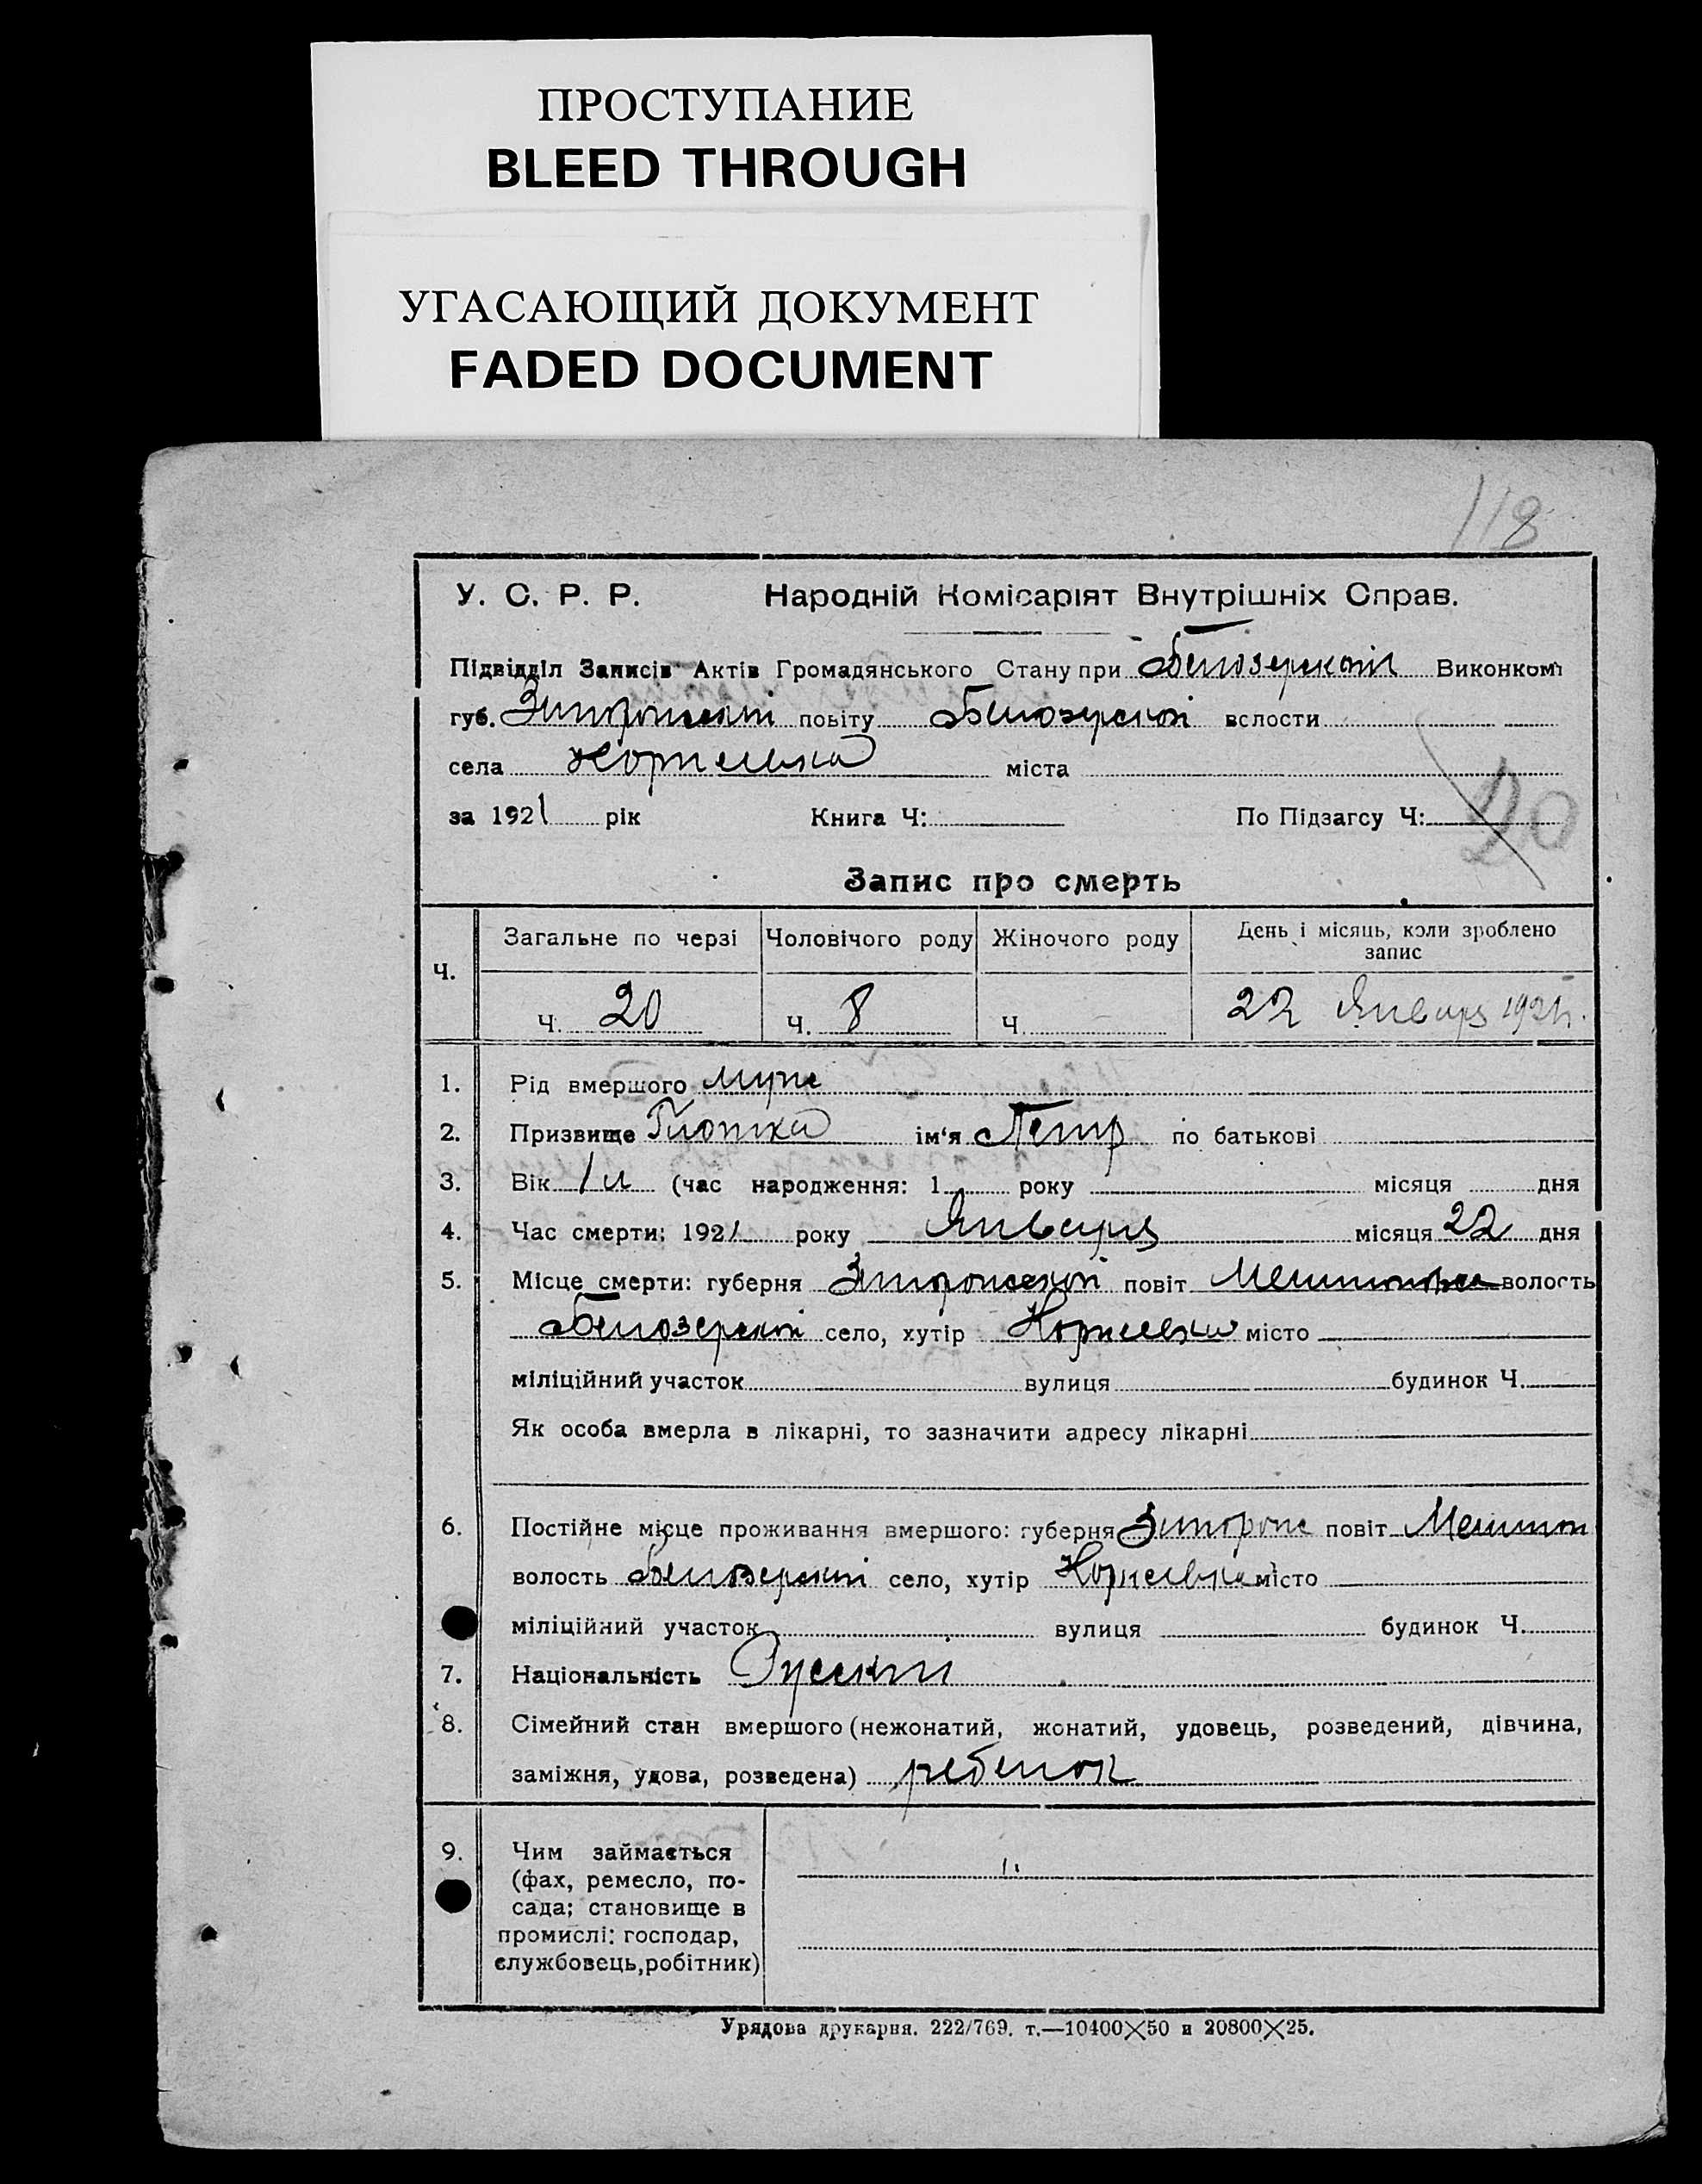 ПРОСТУПАНИЕ
BLEED THROUGH
УГАСАЮЩИЙ ДОКУМЕНТ
FADED DOCUMENT
118
У. С. Р. Р. Народній Комісаріят Внутрішніх Справ.
Підвідділ Записів Актів Громадянського Стану при Белозерской Виконком
губ. Запорожской повіту Белозерской вслости
села міста
за 1921 рік Книга Ч: По Підзагсу Ч: 20
Запис про смерть
Ч. Загальне по черзі Чоловічого роду Жіночого роду День і місяць, коли зроблено запис
Ч. 20 Ч. 8 Ч. 22 Января 1921 г.
1. Рід вмершого муж
2. Призвище ім‘я Петр по батькові
3. Вік (час народження: 1 року місяця дня
4. Час смерти: 1921 року Января місяця 22 дня
5. Місце смерти: губерня Запорожской повіт волость
Белозерской село, хутір місто
міліційний участок вулиця будинок Ч.
Як особа вмерла в лікарні, то зазначити адресу лікарні
6. Постійне місце проживання вмершого: губерня Запорож повіт Мелитоп
волость Белозерской село, хутір місто
міліційний участок вулиця будинок Ч.
7. Національність Русский
8. Сімейний стан вмершого (нежонатий, жонатий, удовець, розведений, дівчина,
заміжня, удова, розведена) ребенок
9. Чим займається
(фах, ремесло, по-
сада; становище в
промислі: господар,
службовець,робітник)
Урядова друкарня. 222/769. т.—10400×50 и 20800×25.